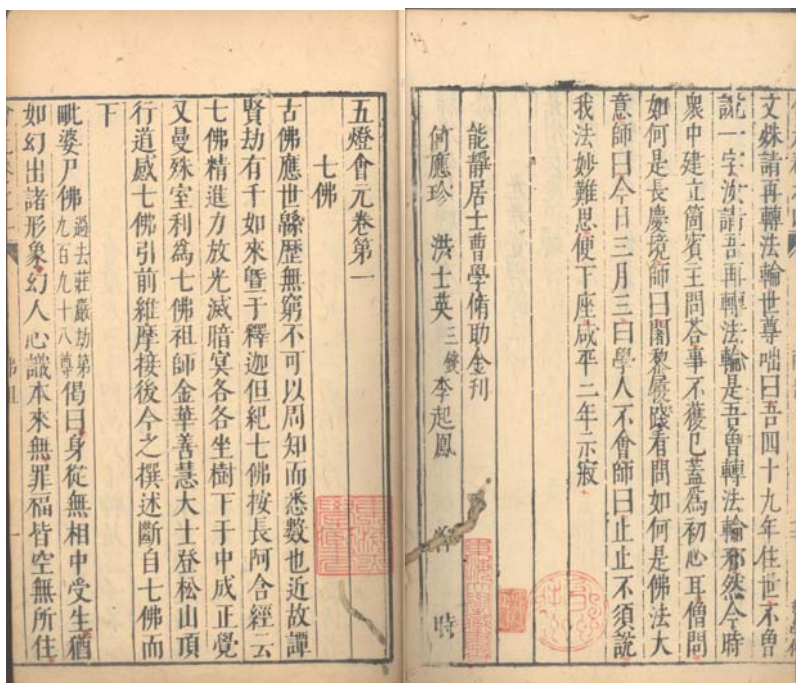 文殊請再轉法輪世尊咄曰吾四十九年住世不曾
說一字汝請吾再轉法輪是吾曾轉法輪邪然今時
衆中建立箇賓主問荅事不獲已蓋爲初心耳僧問
如何是長慶境師曰闍黎履踐看問如何是佛法大
意師曰今日三月三曰學人不會師曰止止不須說
我法妙難思便下座咸平二年示寂
能靜居士曹學佺助金刊
何應珍 洪士英 三錢 李起鳳 時
五燈會元卷第一
七佛
古佛應世緜歷無窮不可以周知而悉數也近故譚
賢劫有千如來曁于釋迦但紀七佛按長阿含經云
七佛精進力放光滅暗冥各各坐樹下于中成正覺
又曼殊室利爲七佛祖師金華善慧大士登松山頂
行道感七佛引前維摩接後今之撰述斷自七佛而
下
毗婆尸佛 過去莊嚴劫第九百九十八尊 偈曰身從無相中受生猶
如幻出諸形象幻人心識本來無罪福皆空無所住